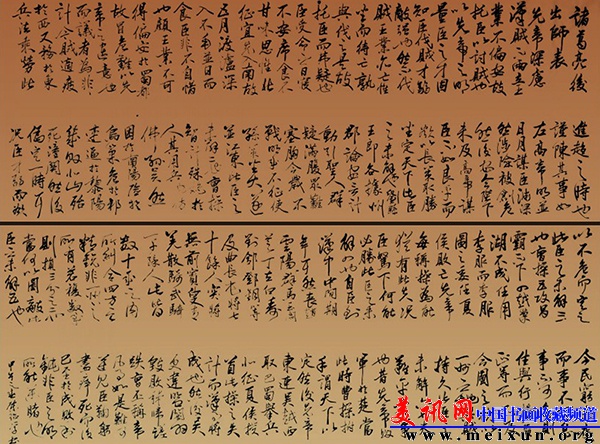 諸葛亮後
出師表
先帝深慮
漢賊不兩立
業不偏安故
托臣以討賊也
以先帝之明
量臣之才固
知臣伐賊才弱
敵強也然不伐
賊王業亦亡
坐而待亡孰
與伐之是故
托臣而弗疑也
臣受命之日寢
不安席食不
甘味思惟北
征宜先入南故
五月渡瀘深
入不毛並日而
食臣非不自惜
也顧王業不可
得偏安於蜀都
故冒危難以
先帝之遺意也
而議者為非
計今賊適疲
於西又務於東
兵法乘勞此
進趨之時也
謹陳其事如
左高帝明並
日月謀臣淵深
然涉險被創危
然後安今陛下
未及高帝謀
臣不如良平而
欲以長策取勝
坐定天下此臣
之未解一也劉繇
王朗各據州
郡論安言計
動引聖人群
疑滿腹眾難
塞胸今歲不
戰明年不征使
孫策坐大遂
並江東此臣之
未解二也曹操
智計殊絕於
人其用兵也
困於南陽險於
烏巢危於祁
連逼於黎陽
幾敗北山殆
死潼關然後
偽定一時耳
況臣才弱而欲
以不危而定之
此臣之未解三
也曹操五攻昌
霸不下四越巢
湖不成任用
李服而李服
圖之委任夏侯
敗亡先帝
每稱操為能
猶有此失況
臣駑下何能
必勝此臣之未
解四也自臣到
漢中中間期
年耳然喪趙
雲陽群馬玉
閻芝丁立白壽
劉郃鄧銅等
及曲長屯將七
十餘人突將
無前賨叟青羌
散騎武騎
一千餘人此皆
數十年之內
所糾合四方之
精銳非一州之
所有若復數年
則損三分之二也
當何以圖敵此
臣之未解五也
今民窮兵疲
而事不可息
事不可息則
住與行勞費
正等而不及
今圖之欲以
一州之地與賊
持久此臣之
未解六也夫
難平者事
也昔先帝敗
軍於楚當
此時曹操拊
手謂天下以
定然後先帝
東連吳越西
取巴蜀舉兵
北征夏侯授
首此操之失
計而漢事將
成也然後吳
更違盟關羽
毀敗秭歸蹉
跌曹丕稱帝
凡事如是難
可逆見臣鞠躬盡
力死而後
已至於成敗利
鈍非臣之明
所能逆睹也
美讯网 中国书画收藏频道
www.meixun.org